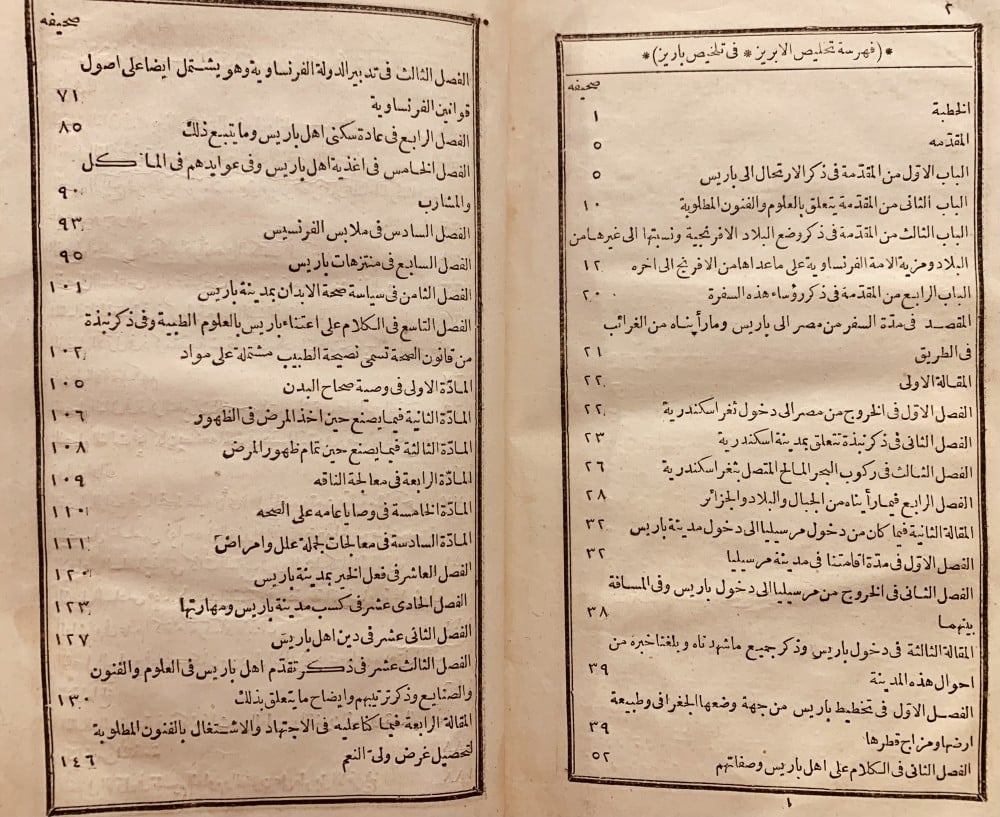 ٢
* (فهرسة تخليص الابريز * فى تلخيص باريز) *
صحيفه
الخطبة ١
المقدّمه ٥
الباب الاوّل من المقدّمة فى ذكر الارتحال الى باريس ٥
الباب الثانى من المقدّمة يتعلق بالعلوم والفنون المطلوبة ١٠
الباب الثالث من المقدّمة فى ذكر وضع البلاد الافرنجية ونسبتها الى غيرها من
البلاد ومزية الامة الفرنساوية على ماعداها من الافرنج الى اخره ١٢
الباب الرابع من المقدّمة فى ذكر رؤساء هذه السفرة ٢٠
المقصد فى مدّة السفر من مصر الى باريس ومارأيناه من الغرائب
فى الطريق ٢١
المقالة الاولى ٢٢
الفصل الاوّل فى الخروج من مصر الى دخول ثغر اسكندرية ٢٢
الفصل الثانى فى ذكر نبذة تتعلق بمدينة اسكندرية ٢٣
الفصل الثالث فى ركوب البحر المالح المتصل بثغر اسكندرية ٢٦
الفصل الرابع فيمارأيناه من الجبال والبلاد والجزائر ٢٨
المقالة الثانية فيما كان من دخول مرسيليا الى دخول مدينة باريس ٣٢
الفصل الاوّل فى مدّة اقامتنا فى مدينة مرسيليا ٣٢
الفصل الثانى فى الخروج من مرسيليا الى دخول باريس وفى المسافة
بينهما ٣٨
المقالة الثالثة فى دخول باريس وذكر جميع ماشهدناه وبلغنا خبره من
احوال هذه المدينة ٣٩
الفصل الاوّل فى تخطيط باريس من جهة وضعها الجغرافى وطبيعة
ارضها ومزاج قطرها ٣٩
الفصل الثانى فى الكلام على اهل باريس وصفاتهم ٥٢
١
صحيفه
الفصل الثالث فى تدبير الدولة الفرنساوية وهو يشتمل ايضا على اصول
قوانين الفرنساوية ٧١
الفصل الرابع فى عادة سكنى اهل باريس وما يتبع ذلك ٨٥
الفصل الخامس فى اغذية اهل باريس وفى عوايدهم فى المآكل
والمشارب ٩٠
الفصل السادس فى ملابس الفرنسيس ٩٣
الفصل السابع فى منتزهات باريس ٩٥
الفصل الثامن فى سياسة صحة الابدان بمدينة باريس ١٠١
الفصل التاسع فى الكلام على اعتناء باريس بالعلوم الطبية وفى ذكر نبذة
من قانون الصحة تسمى نصيحة الطبيب مشتملة على مواد ١٠٢
المادّة الاولى فى وصية صحاح البدن ١٠٥
المادّة الثانية فيما يصنع حين اخذ المرض فى الظهور ١٠٦
المادّة الثالثة فيما يصنع حين تمام ظهور المرض ١٠٨
المادّة الرابعة فى معالجة الناقه ١٠٩
المادّة الخامسة فى وصايا عامه على الصحه ١١٠
المادّة السادسة فى معالجات لجملة علل وامراض ١١١
الفصل العاشر فى فعل الخير بمدينة باريس ١٢٠
الفصل الحادى عشر فى كسب مدينة باريس ومهارتها ١٢٣
الفصل الثانى عشر فى دين اهل باريس ١٢٧
الفصل الثالث عشر فى ذكر تقدّم اهل باريس فى العلوم والفنون
والصنايع وذكر ترتيبهم وايضاح ما يتعلق بذلك ١٣٠
المقالة الرابعة فيما كنا عليه فى الاجتهاد والاشتغال بالفنون المطلوبة
لتحصيل غرض ولىّ النعم ١٤٦